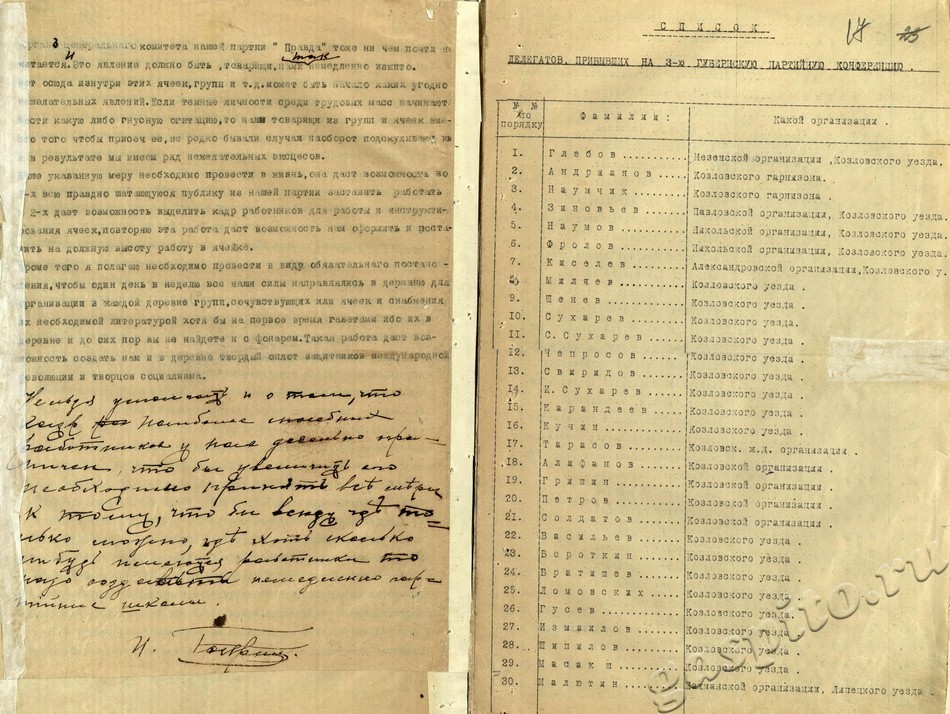 органа Центрального комитета нашей партии " Правда" тоже ни чем почти не
читается. Это явление должно быть, товарищи, нами немедленно изжито.
вот отсюда изнутри этих ячеек, групп и т.д. может быть начало каких угодно
нежелательных явлений. Если темные личности среди трудовых масс начинают
вести какую либо гнусную агитацию, то наши товарищи из групп и ячеек
того чтобы присеч ее, не родко бывали случаи наоборот подскуливают им
и в результате мы имеем ряд нежелательных эксцесов.
выше указанную меру необходимо провести в жизнь, она даст возможность во
-х всю праздно шатающуюся публику из нашей партии заставить работать
2-х дает возможность выделить кадр работников для работы и инструкти-
рования ячеек, повторяю эта работа даст возможность нам оформить и поста-
вить на должную высоту работу в ячейке.
кроме того я полагаю необходимо провести в виду обязательного постано-
ления, чтобы один день в неделю все наши силы направлялись в деревню для
организации в каждой деревне групп, сочувствующих или ячеек и снабжения
их необходимой литературой хотя бы на первое время газетами ибо их в
деревне и до сих пор вы не найдете и с фонарем. Такая работа даст воз-
можность создать нам и в деревне твердый оплот защитников международной
революции и творцов социализма.
Нельзя умолчать и о том, что
кадр наиболее способных
работников у нас довольно
что бы увеличить его
необходимо принять все меры
к тому, что бы всюду где то-
лько можно, где хоть сколько
нибудь имеются работники то
надо создавать немедленно пар-
тийные школы.
И.
СПИСОК
17 25
ДЕЛЕГАТОВ, ПРИБЫВШИХ НА 3-ю ГУБЕРНСКУЮ ПАРТИЙНУЮ КОНФЕРЕНЦИЮ .
№ № по порядку Фамилии : Какой организации .
1. Глебов ........ Мезенской организации ,Козловского уезда.
2. Андрианов ..... Козловского гарнизона.
3. Наумчик ....... Козловского гарнизона .
4. Зиновьев ...... Павловской организации, Козловского уезда.
5. Наумов ........ Никольской организации, Козловского уезда.
6. Фролов ........ Никольской организации, Козловского уезда.
7. Киселев ....... Александровской организации,Козловского у.
8. Миляев ........ Козловского уезда .
9. Шенев ......... Козловского уезда.
10. Сухарев ....... Козловского уезда.
11. С.Сухарев ..... Козловского уезда .
12. Чепросов ...... Козловского уезда .
13. Свиридов ...... Козловского уезда .
14. И.Сухарев ..... Козловского уезда .
15. Карандеев ..... Козловского уезда .
16. Кучин ......... Козловского уезда .
17. Тарасов ....... Козловск. ж.д. организации .
18. Алифанов ...... Козловской организации .
19. Гришин ........ Козловской организации .
20. Петров ........ Козловской организации .
21. Солдатов ...... Козловской организации .
22. Васильев ...... Козловского уезда .
23. Бороткин ...... Козловского уезда.
24. Братишев ...... Козловского уезда .
25. Ломовских ..... Козловского уезда .
26. Гусев ......... Козловского уезда.
27. Измаилов ...... Козловского уезда
28. Шипилов ....... Козловского уезда .
29. Масакш ........ Козловского уезда .
30. Малютин ....... организации, Липецкого уезда .
gaspito.ru